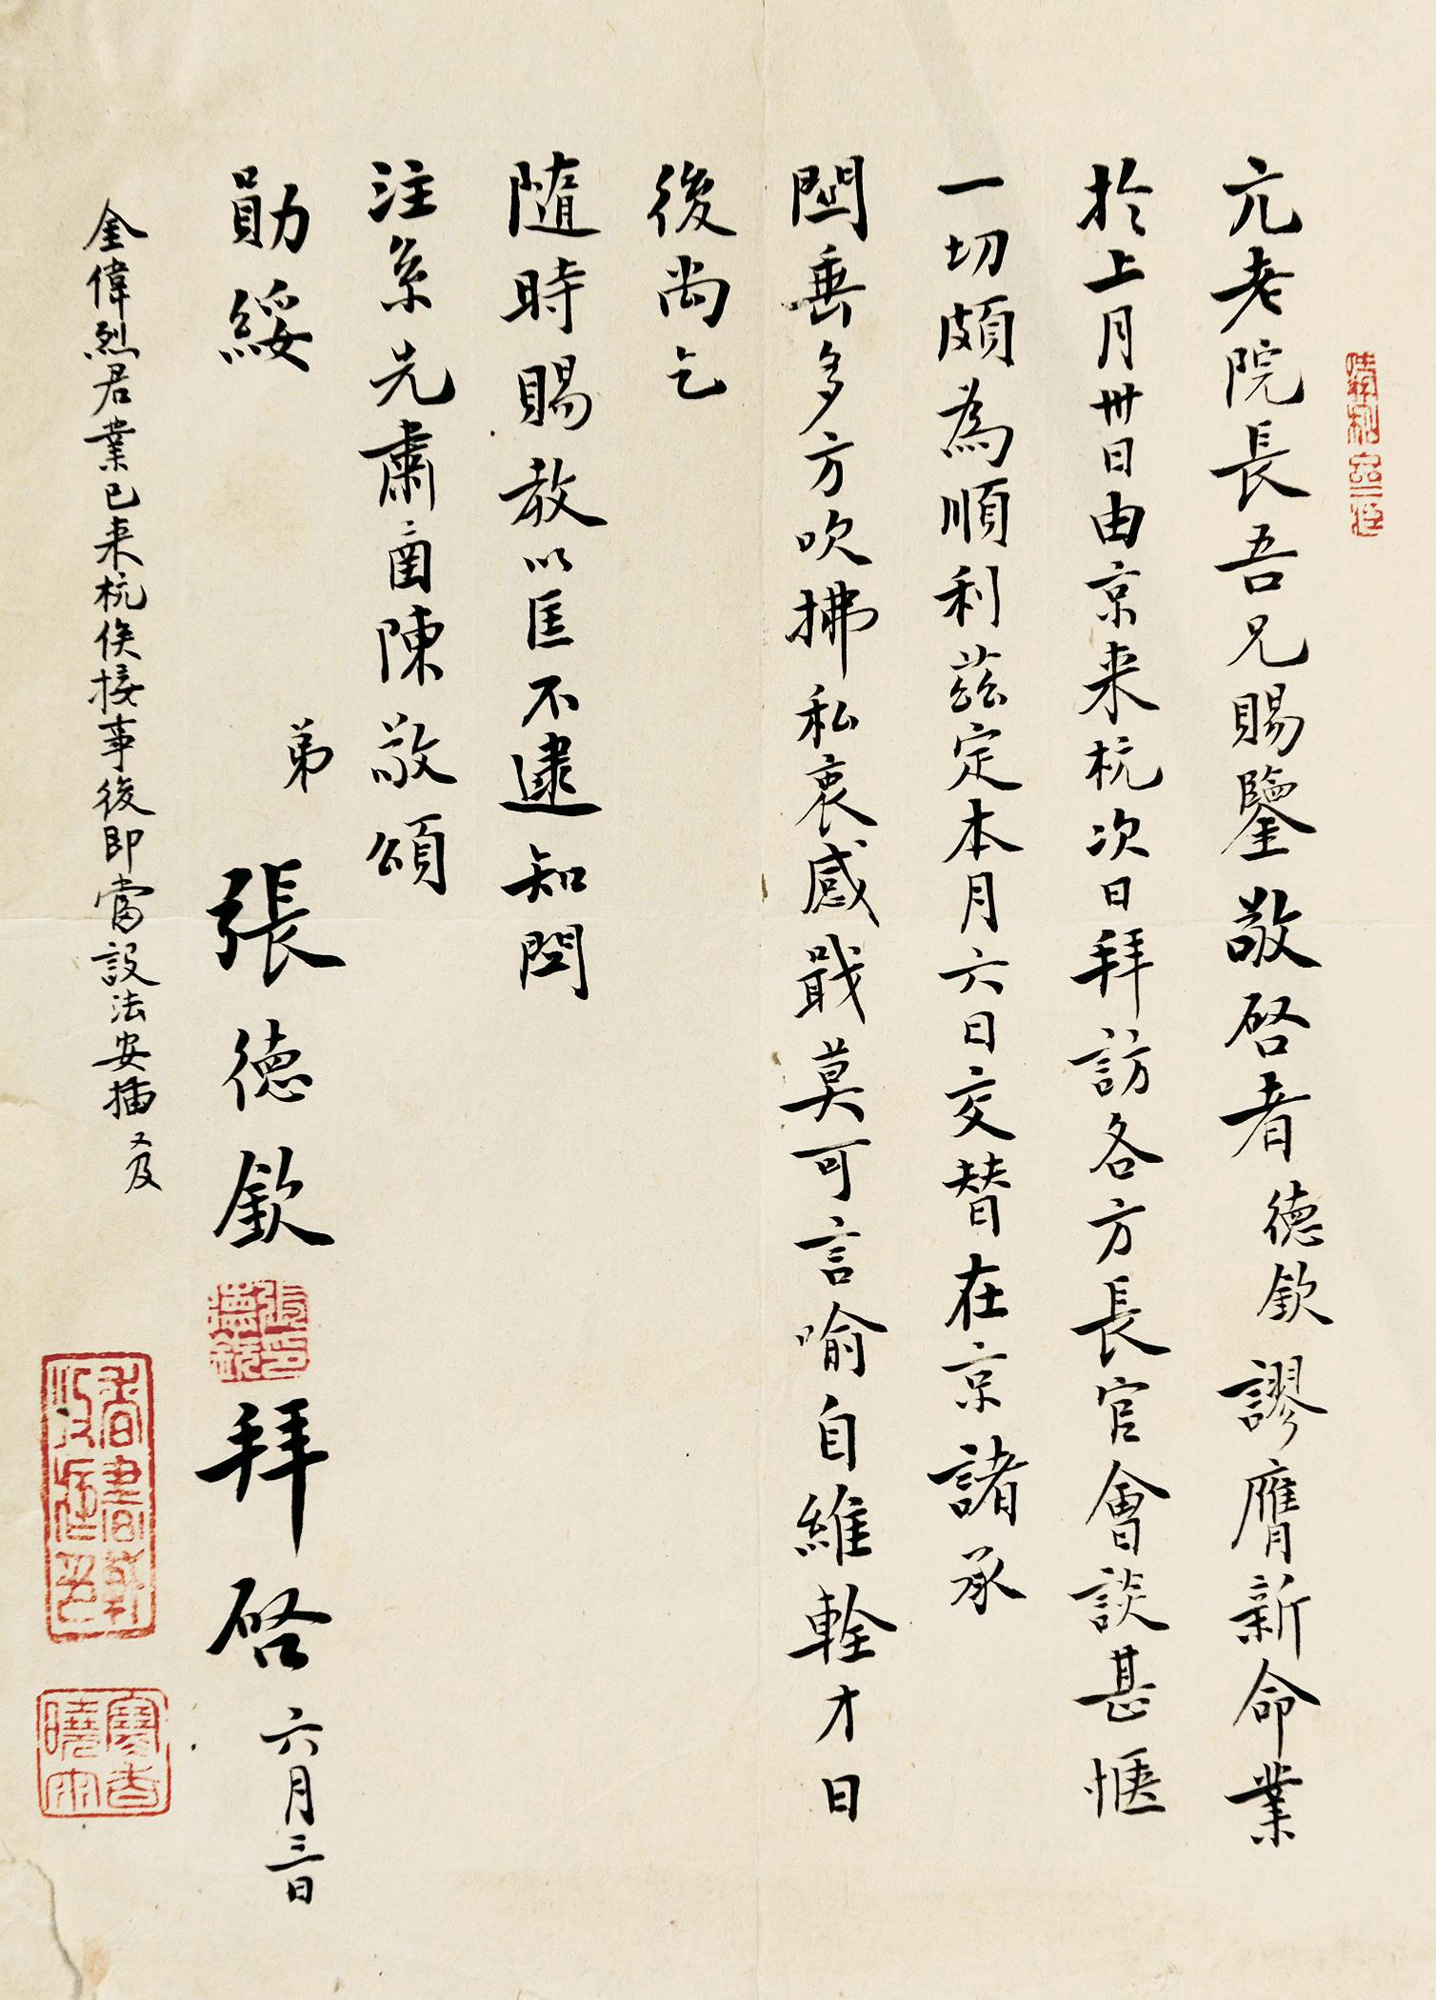 亢老院長吾兄賜鑒敬啓者德欽謬膺新命業
於上月卅日由京来杭次日拜訪各方長官會談甚愜
一切頗為順利茲定本月六日交替在京諸承
關垂多方吹拂私衷感戢莫可言喻自維輇才日
後尚乞
隨時賜教以匡不逮知關
注系先肅奉陳敬頌
勛綏
弟 張德欽拜啓 六月三日
金偉烈君業已来杭俟接事後即當設法安插 又及
張德欽印